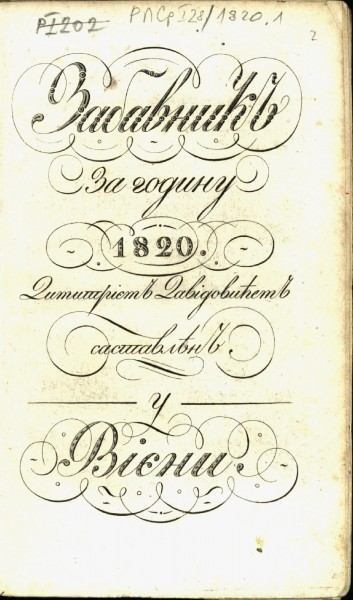 РI202 РЛСр I 28/1820.1
2
Забавникъ
за годину
1820.
Димитрiемъ Давiдовићемъ
саставлѣнъ.
у
Вiєни.